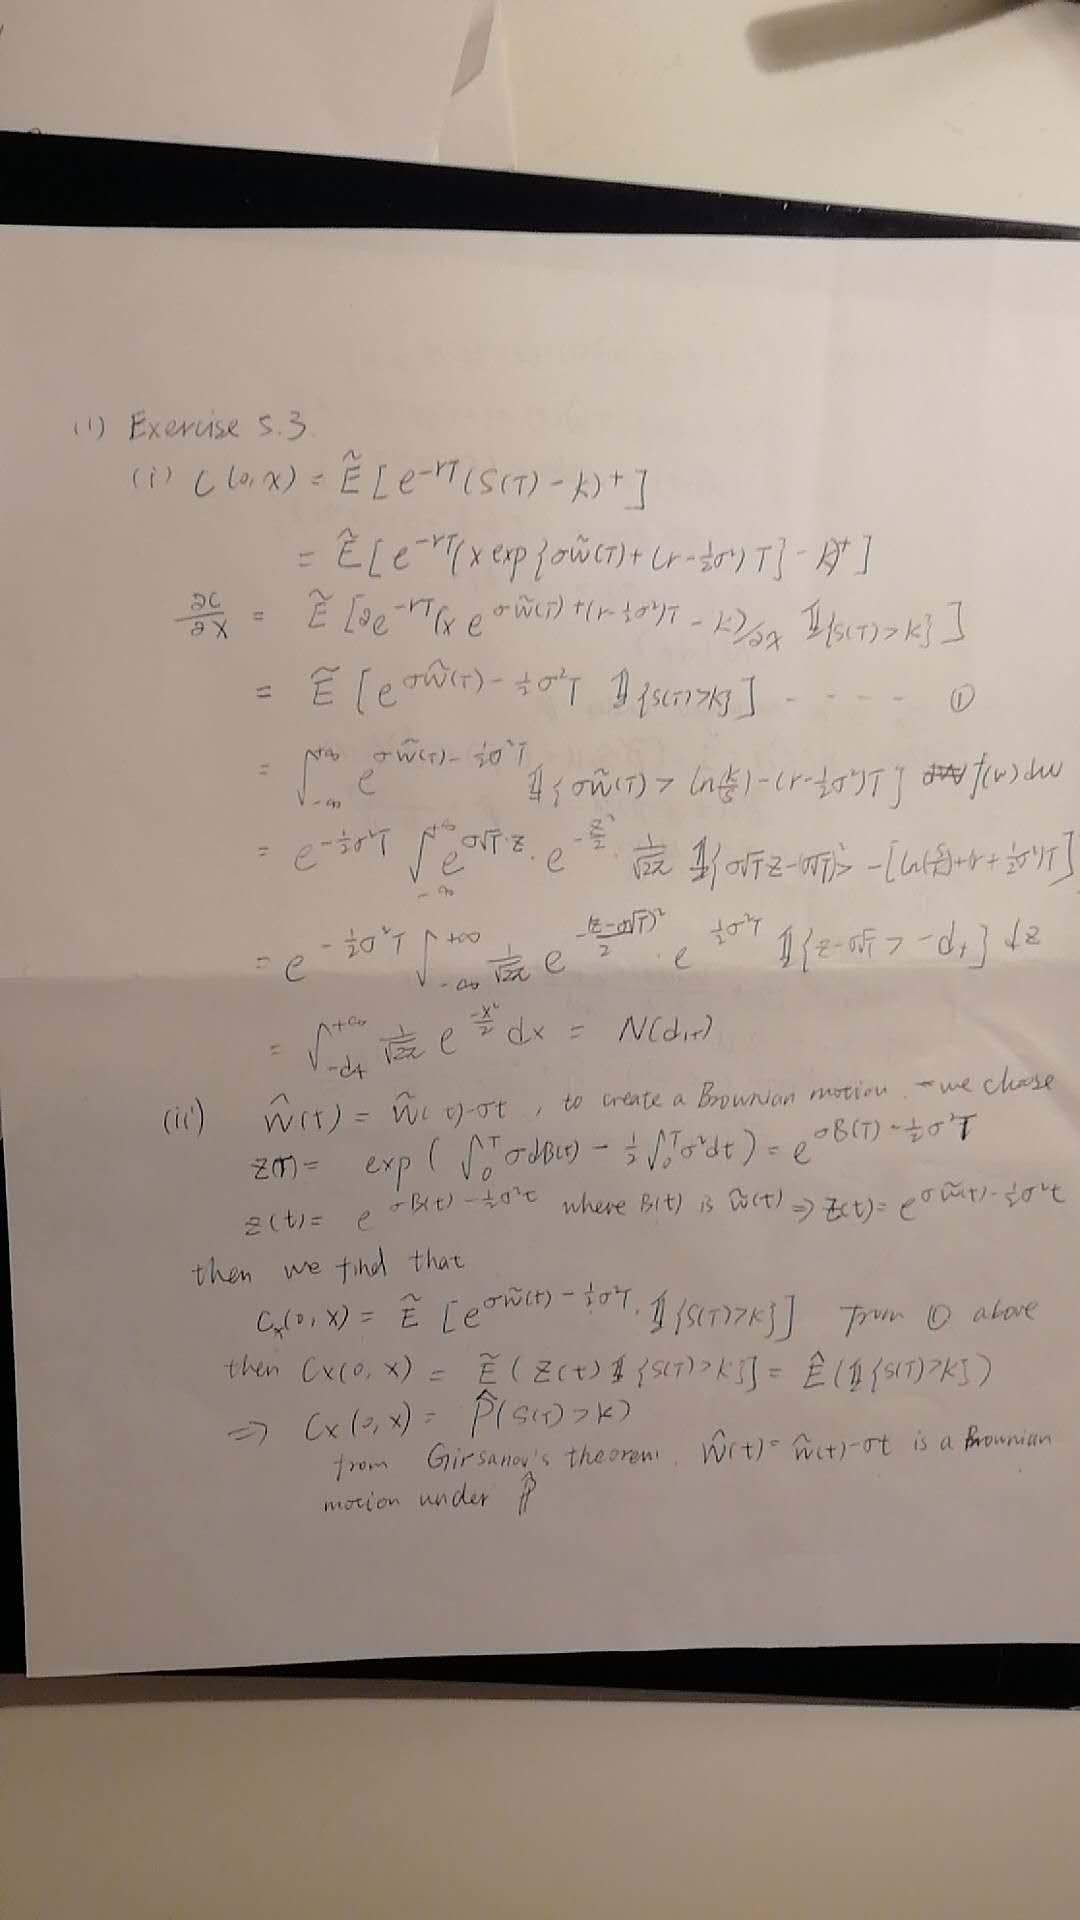 (1) Exercise 5.3.
(i) C(0,x) = Ẽ[e^{-rT}(S(T) - k)^+]
= Ẽ[e^{-rT}(x exp{σW̃(T) + (r - ½σ²)T} - k)^+]
∂C/∂x = Ẽ[∂e^{-rT}(x e^{σW̃(T) + (r-½σ²)T} - k)/∂x 𝟙{S(T)>k}]
= Ẽ[e^{σW̃(T) - ½σ²T} 𝟙{S(T)>k}] - - - - ①
= ∫_{-∞}^{+∞} e^{σW̃(T) - ½σ²T} 𝟙{σW̃(T) > ln(k/s) - (r-½σ²)T} f(w)dw
= e^{-½σ²T} ∫_{-∞}^{+∞} e^{σ√T·z} · e^{-z²/2} · 1/√2π 𝟙{σ√T z - (σ√T)² > -[ln(s/k) + r + ½σ²)T]
= e^{-½σ²T} ∫_{-∞}^{+∞} 1/√2π e^{-(z-σ√T)²/2} · e^{½σ²T} 𝟙{z - σ√T > -d₊} dz
= ∫_{-d₊}^{+∞} 1/√2π e^{-x²/2} dx = N(d₊)
(ii) Ŵ(t) = W̃(t) - σt, to create a Brownian motion - we choose
Z(T) = exp(∫₀ᵀ σdB(t) - ½∫₀ᵀ σ²dt) = e^{σB(T) - ½σ²T}
Z(t) = e^{σB(t) - ½σ²t} where B(t) is W̃(t) ⇒ Z(t) = e^{σW̃(t) - ½σ²t}
then we find that
Cx(0, x) = Ẽ[e^{σW̃(t) - ½σ²T} · 𝟙{S(T)>k}] from ① above
then Cx(0, x) = Ẽ(Z(t) 𝟙{S(T)>k}] = Ê(𝟙{S(T)>k})
⇒ Cx(0, x) = P̂(S(T)>k)
from Girsanov's theorem, Ŵ(t) = W̃(t) - σt is a Brownian
motion under P̂